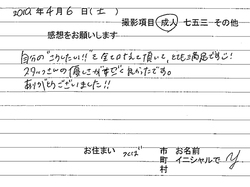 2012年4月6日(土)
撮影項目 成人 七五三 その他
感想をお願いします
自分の"こうしたい!!"を全て叶えて頂いて、とても満足です♡!
スタッフさんの優しさが本当に良かったです。
ありがとうございました!!
お住まい つくば 市町村
お名前 イニシャルで Y